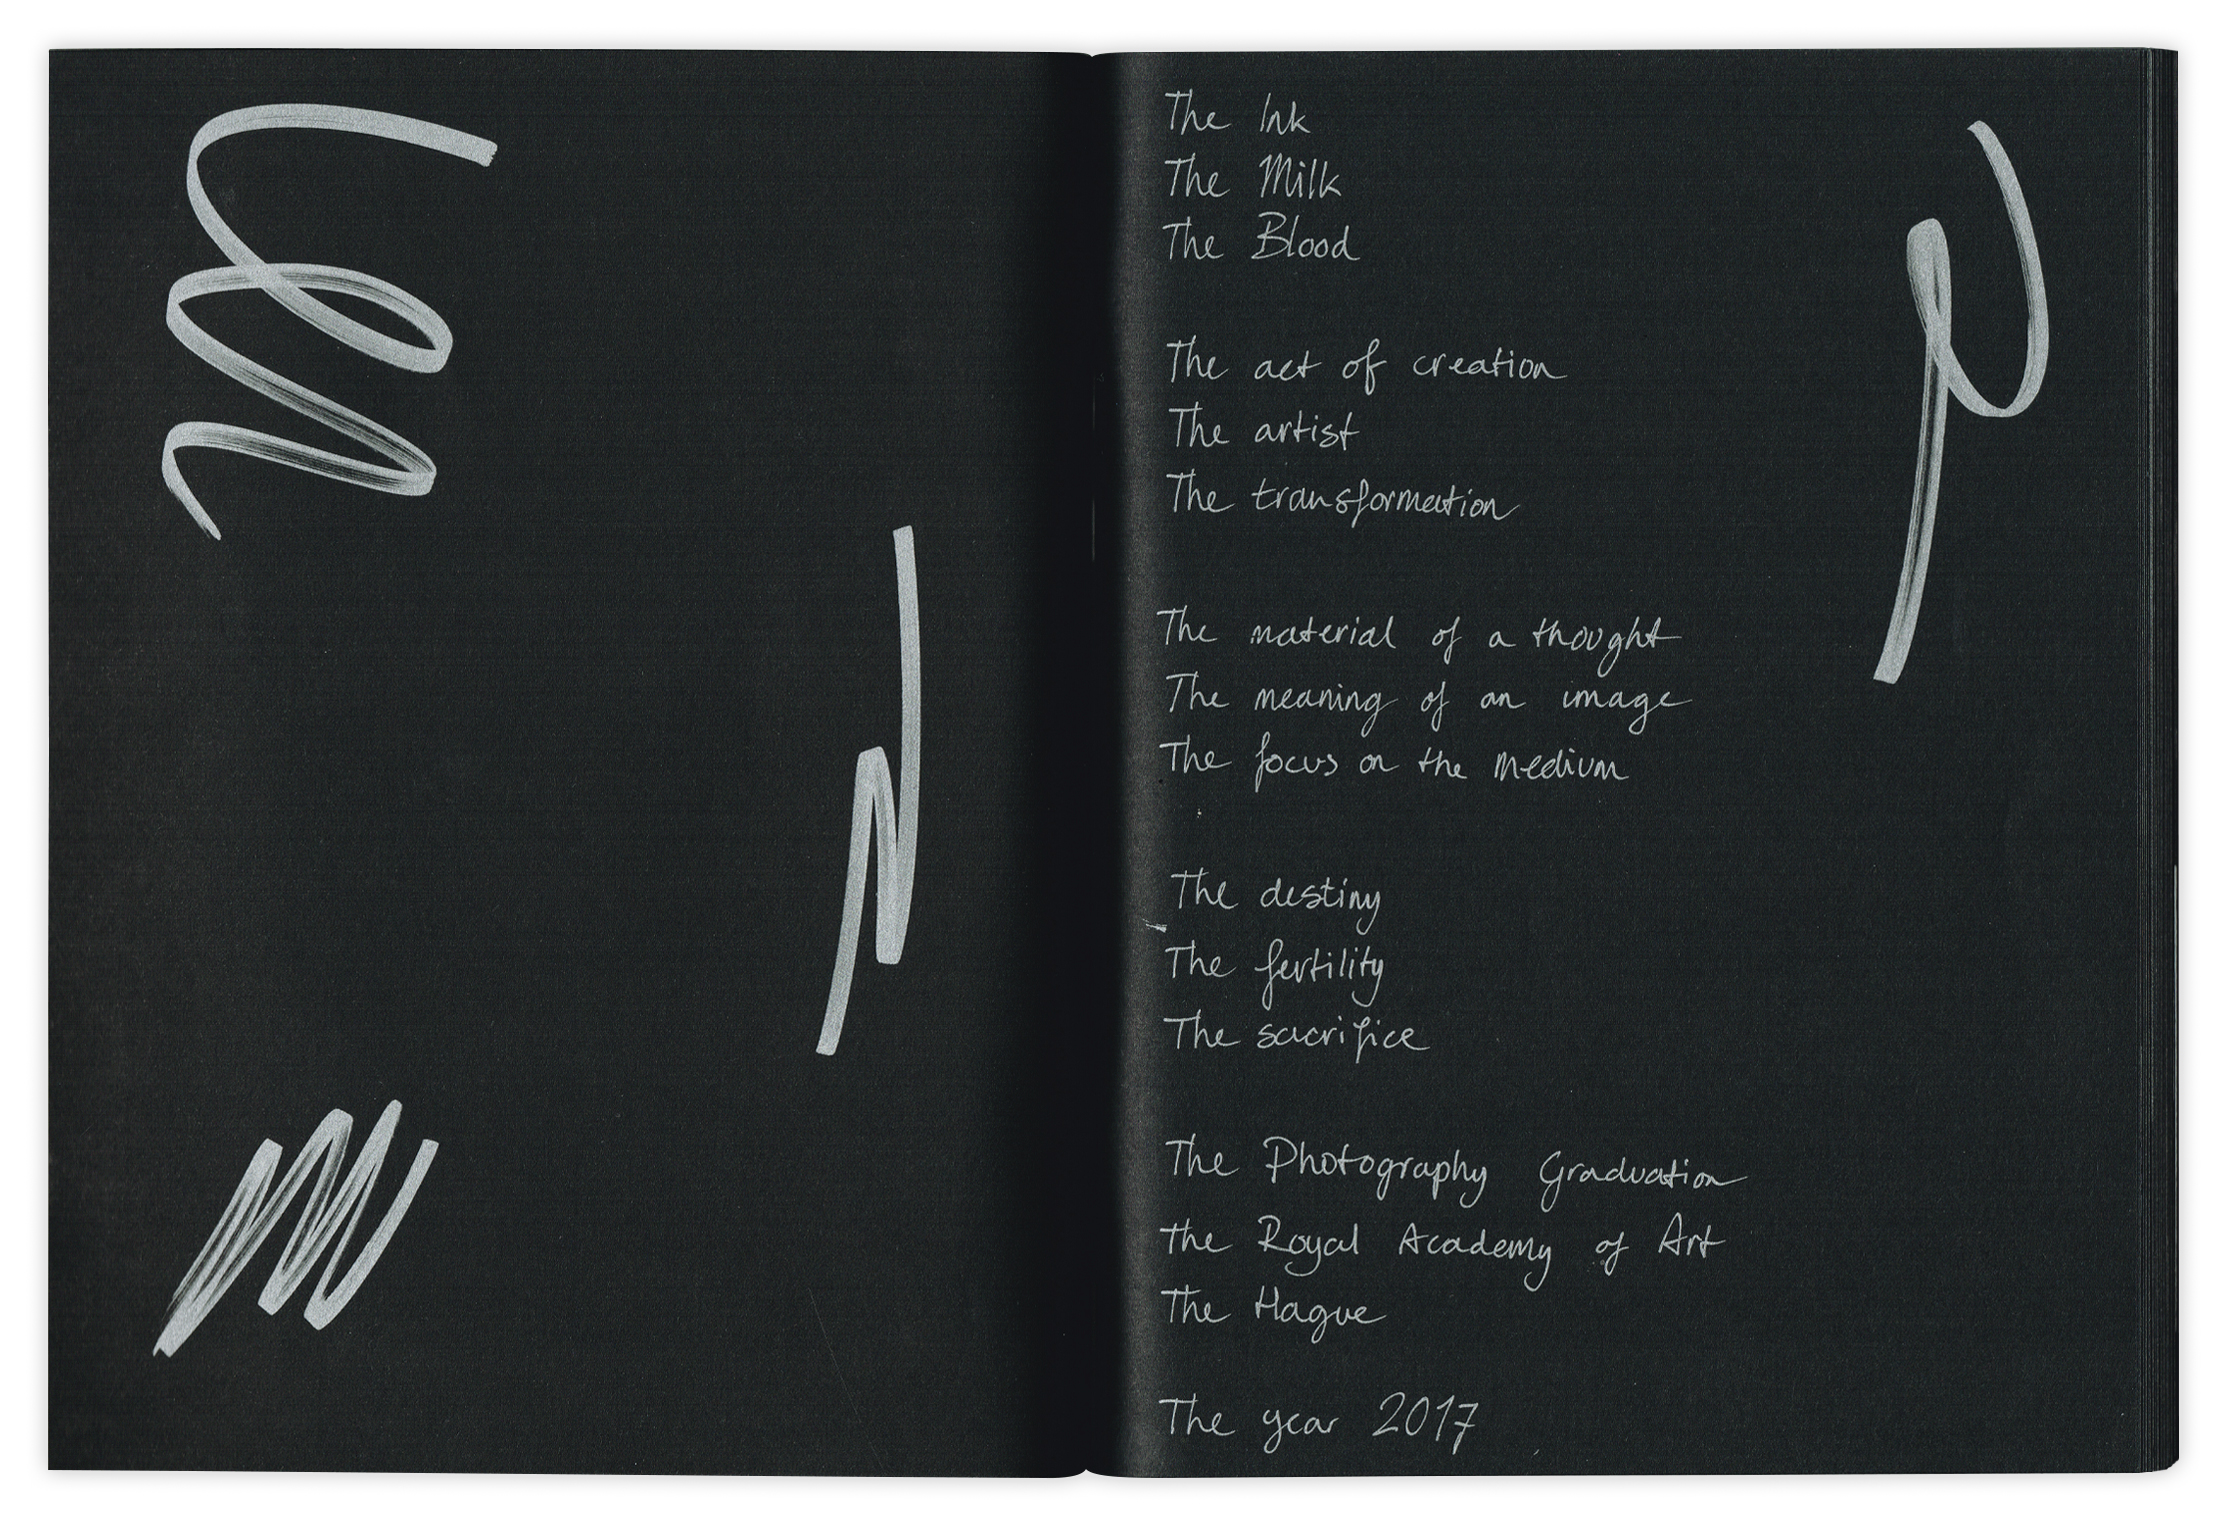 The Ink
The Milk
The Blood
The act of creation
The artist
The transformation
The material of a thought
The meaning of an image
The focus on the medium
The destiny
The fertility
The sacrifice
The Photography Graduation
the Royal Academy of Art
The Hague
The year 2017